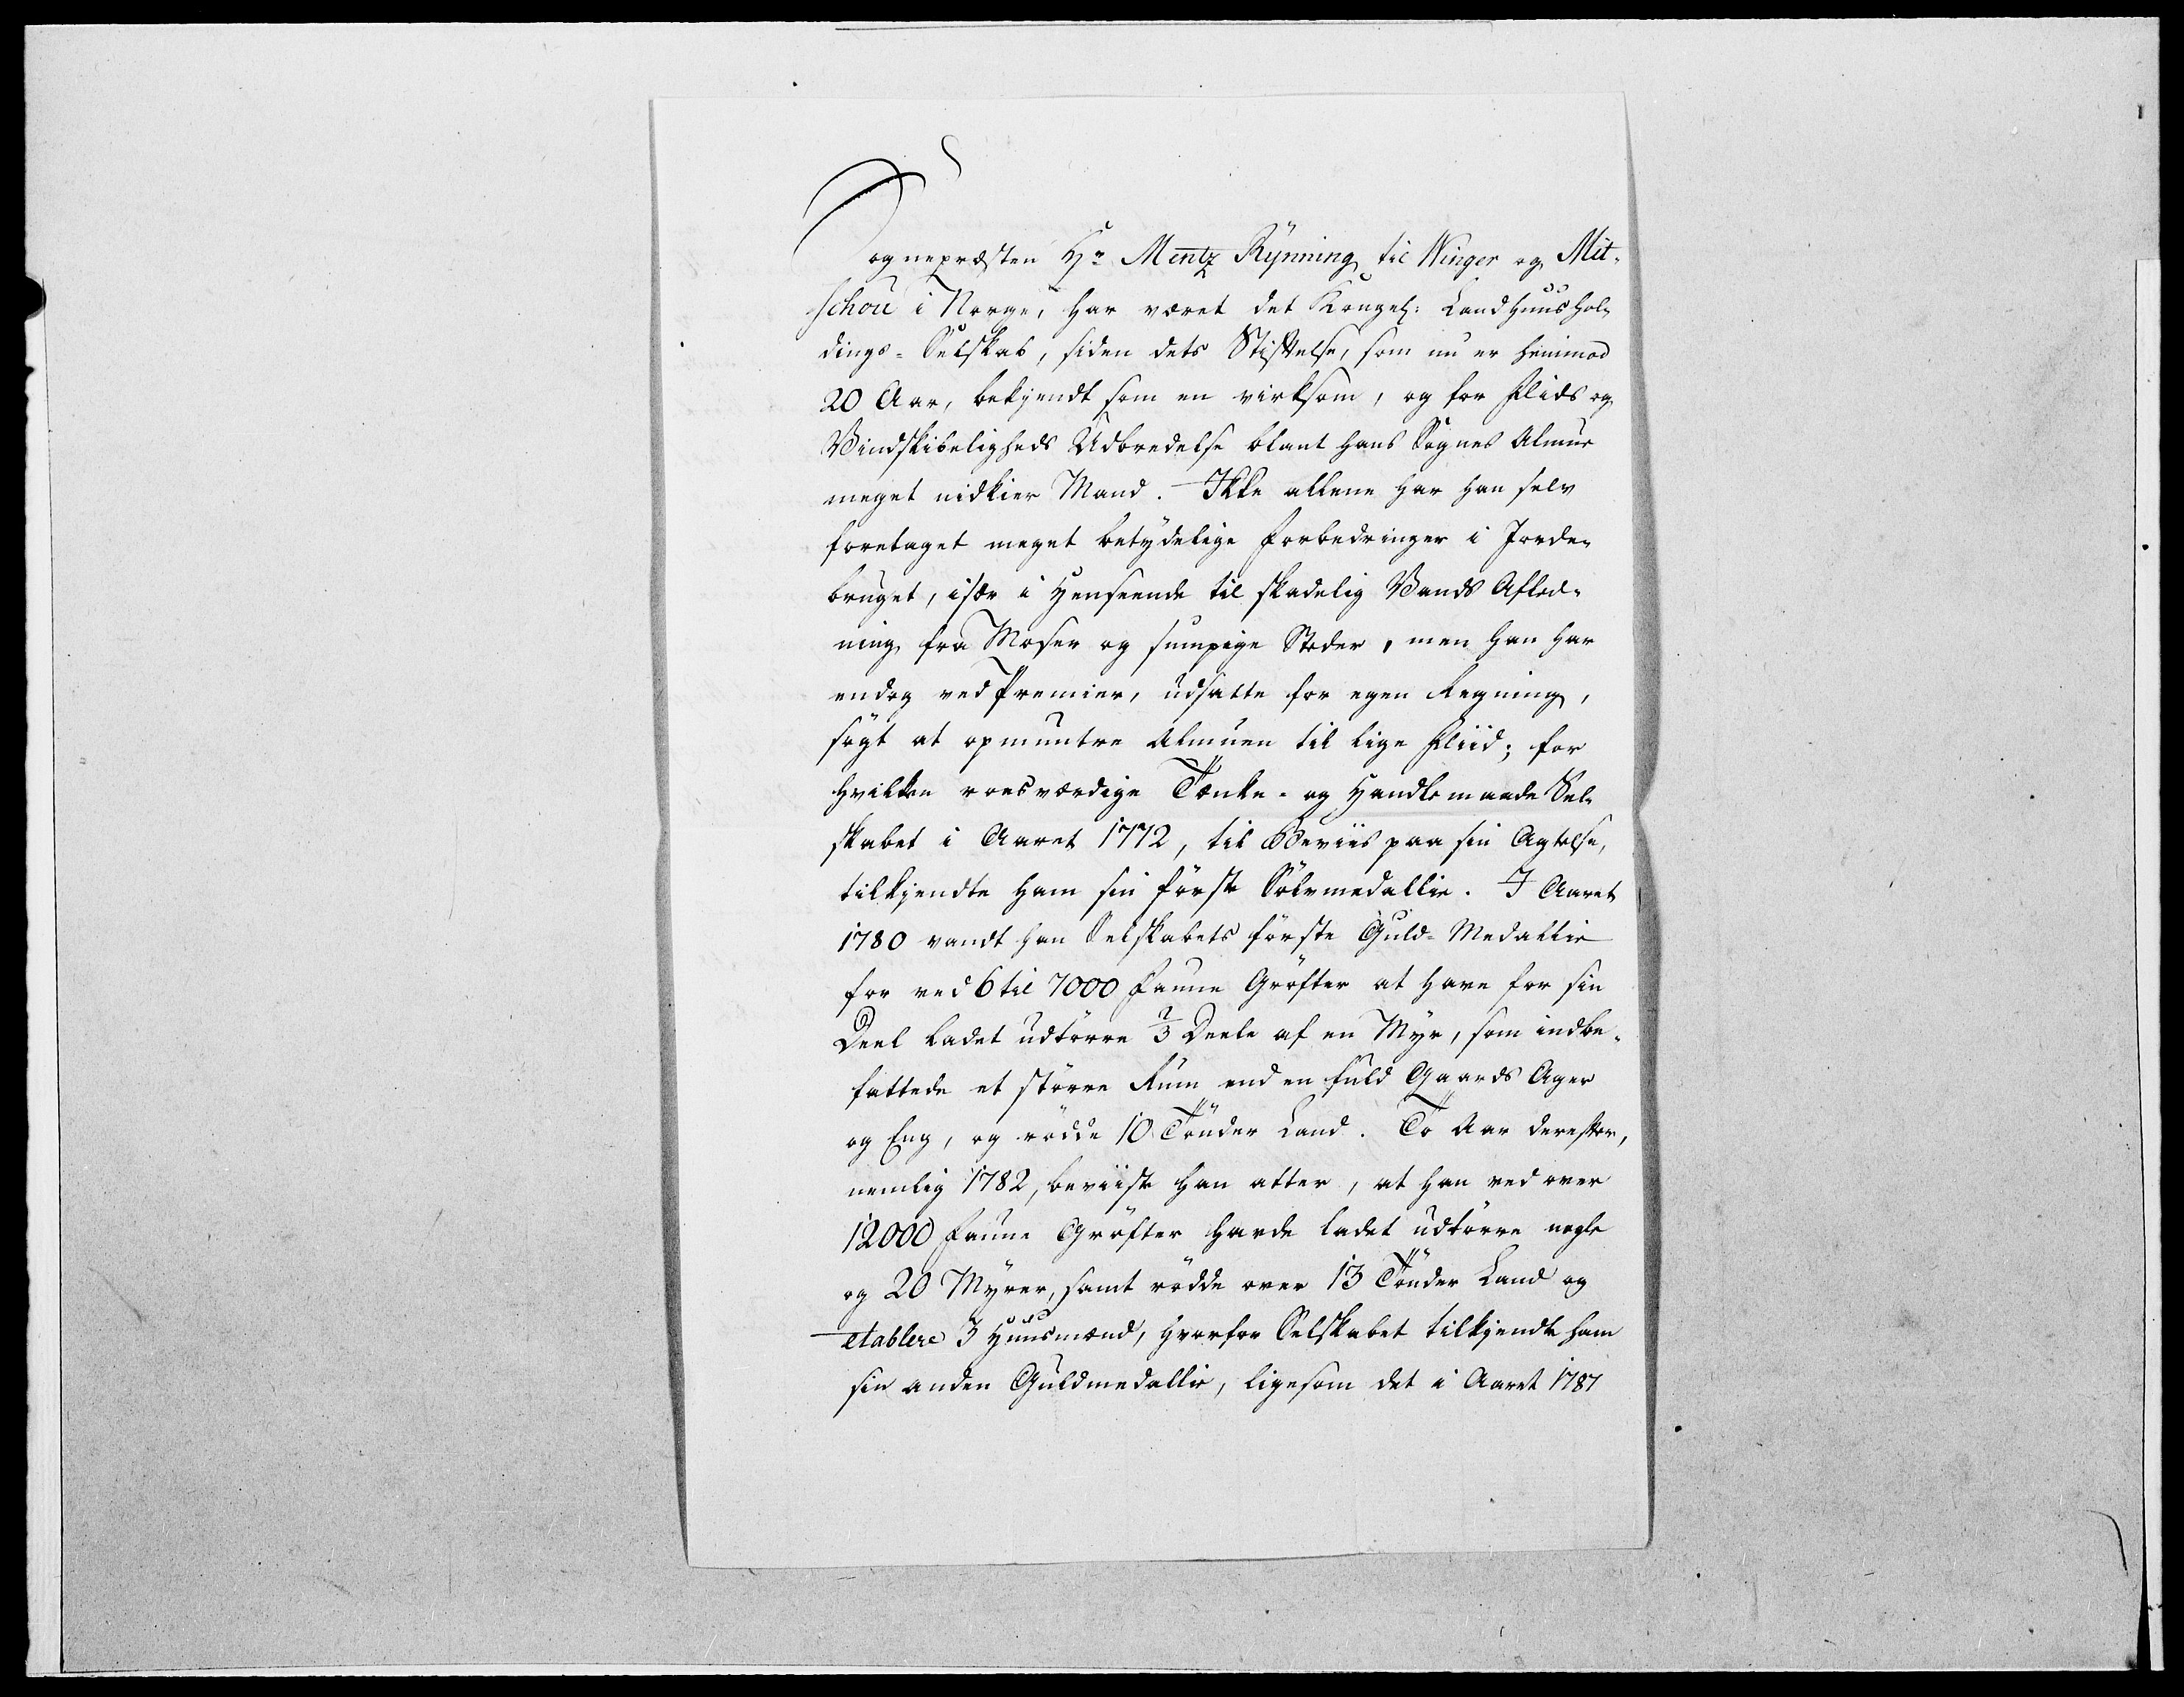 Sognepræsten Hr Mentz Rÿnning til Winger og Mit-
schou i Norge, har været det Kongel: Landhuushol-
dings-Selskab, siden dets Stiftelse, som nu er henimod
20 Aar, bekjendt som en virksom, og for Flids og
Vindskibeligheds Udbredelse blant hans Sognes Almue
meget nidkier Mand. Ikke allene har han selv
foretaget meget betÿdelige Forbedringer i Jorde-
bruget, især i Henseende til skadelig Vands Afled-
ning fra Moser og sumpige Steder, men han har
endog ved Premier, udsatte for egen Regning,
søgt at opmuntre Almuen til lige Fliid; for
hvilken roesværdige Tænke- og Handlemaade Sel-
skabet i Aaret 1772, til Beviis paa sin Agtelse,
tilkjendte ham sin første Sølvmedallie. I Aaret
1780 vandt han Selskabets første Guld-Medallie
for ved 6 til 7000 Favne Grøfter at have for sin
Deel ladet udtørre 2/3 Deele af en Mÿr, som indbe-
fattede et større Rum end en fuld Gaards Ager
og Eng, og rødde 10 Tønder Land. To Aar derefter,
nemlig 1782, beviiste han atter, at han ved over
12000 Favne Grøfter havde ladet udtørre nogle
og 20 Mÿrer, samt rødde over 13 Tønder Land og
etablere 3 Huusmænd, hvorfor Selskabet tilkjendte ham
sin anden Guldmedallie, ligesom det i Aaret 1787